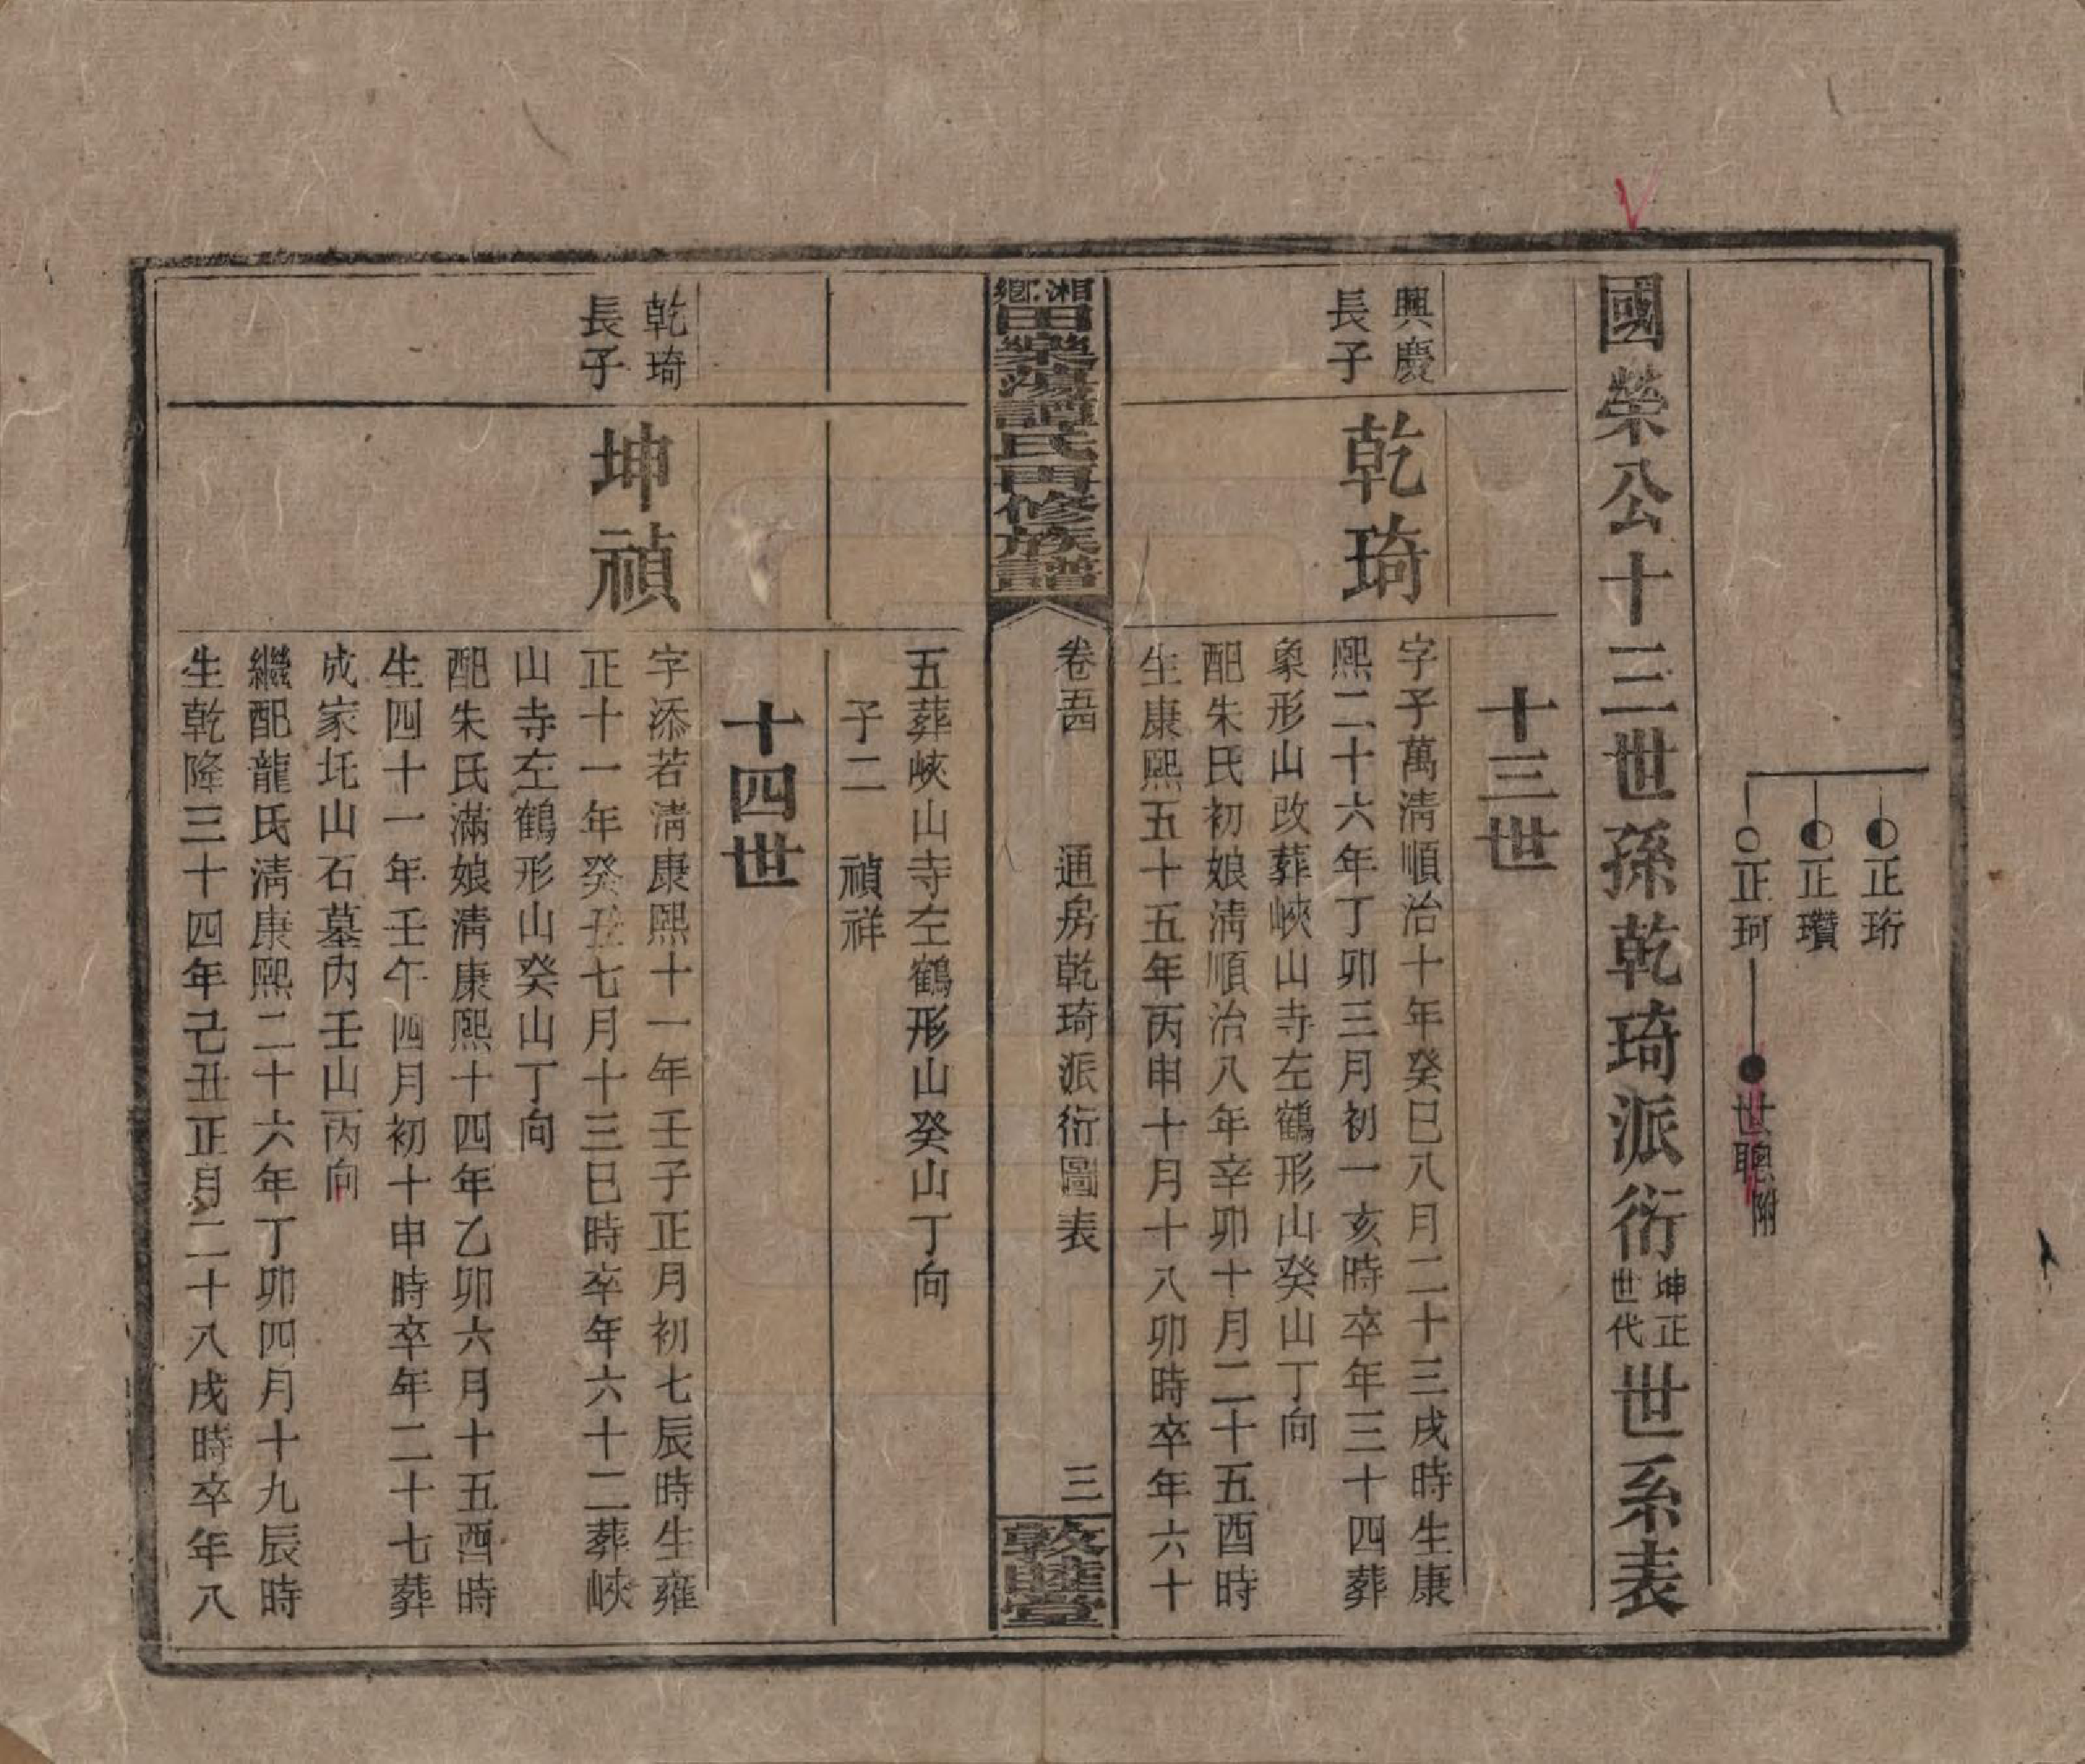 正珩
正瓚
正珂
世聰附
國榮公十三世孫乾琦派衍坤正世代世系表
十三世
興慶長子
乾琦
字子萬淸順治十年癸巳八月二十三戌時生康
熙二十六年丁卯三月初一亥時卒年三十四葬
象形山改葬峽山寺左鶴形山癸山丁向
配朱氏初娘淸順治八年辛卯十月二十五酉時
生康熙五十五年丙申十月十八卯時卒年六十
湘鄉田樂蕩譚氏再修族譜
卷五
通房乾琦派衍圖表
三
敦睦堂
五葬峽山寺左鶴形山癸山丁向
子二 禎祥
十四世
乾琦長子
坤禎
字添若淸康熙十一年壬子正月初七辰時生雍
正十一年癸丑七月十三巳時卒年六十二葬峽
山寺左鶴形山癸山丁向
配朱氏滿娘淸康熙十四年乙卯六月十五酉時
生四十一年壬午四月初十申時卒年二十七葬
成家坵山石墓內壬山丙向
繼配龍氏淸康熙二十六年丁卯四月十九辰時
生乾隆三十四年己丑正月二十八戌時卒年八